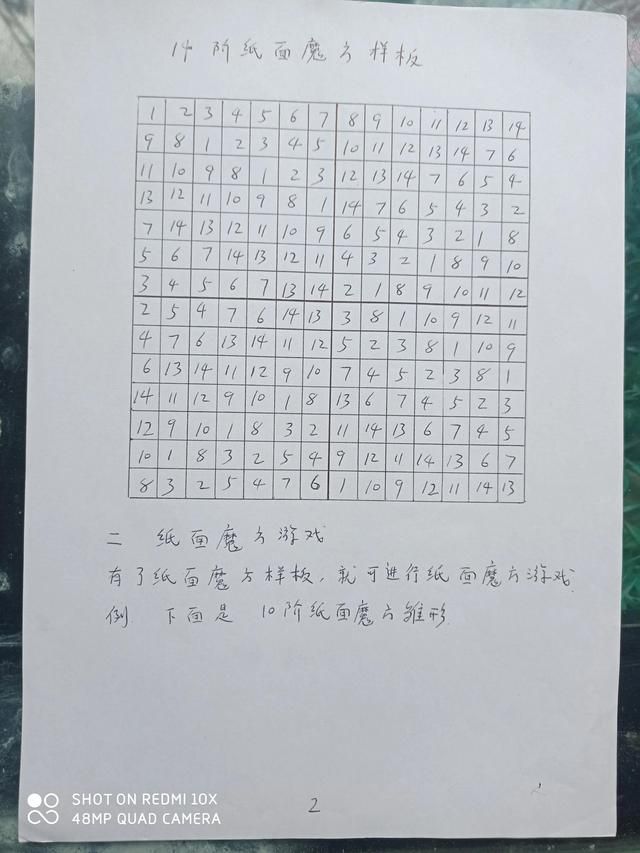 14阶纸面魔方样板
1 2 3 4 5 6 7 8 9 10 11 12 13 14
9 8 1 2 3 4 5 10 11 12 13 14 7 6
11 10 9 8 1 2 3 12 13 14 7 6 5 4
13 12 11 10 9 8 1 14 7 6 5 4 3 2
7 14 13 12 11 10 9 6 5 4 3 2 1 8
5 6 7 14 13 12 11 4 3 2 1 8 9 10
3 4 5 6 7 13 14 2 1 8 9 10 11 12
2 5 4 7 6 14 13 3 8 1 10 9 12 11
4 7 6 13 14 11 12 5 2 3 8 1 10 9
6 13 14 11 12 9 10 7 4 5 2 3 8 1
14 11 12 9 10 1 8 13 6 7 4 5 2 3
12 9 10 1 8 3 2 11 14 13 6 7 4 5
10 1 8 3 2 5 4 9 12 11 14 13 6 7
8 3 2 5 4 7 6 1 10 9 12 11 14 13
二 纸面魔方游戏
有了纸面魔方样板,就可进行纸面魔方游戏.
例. 下面是 10阶纸面魔方雏形.
2
SHOT ON REDMI 10X
48MP QUAD CAMERA